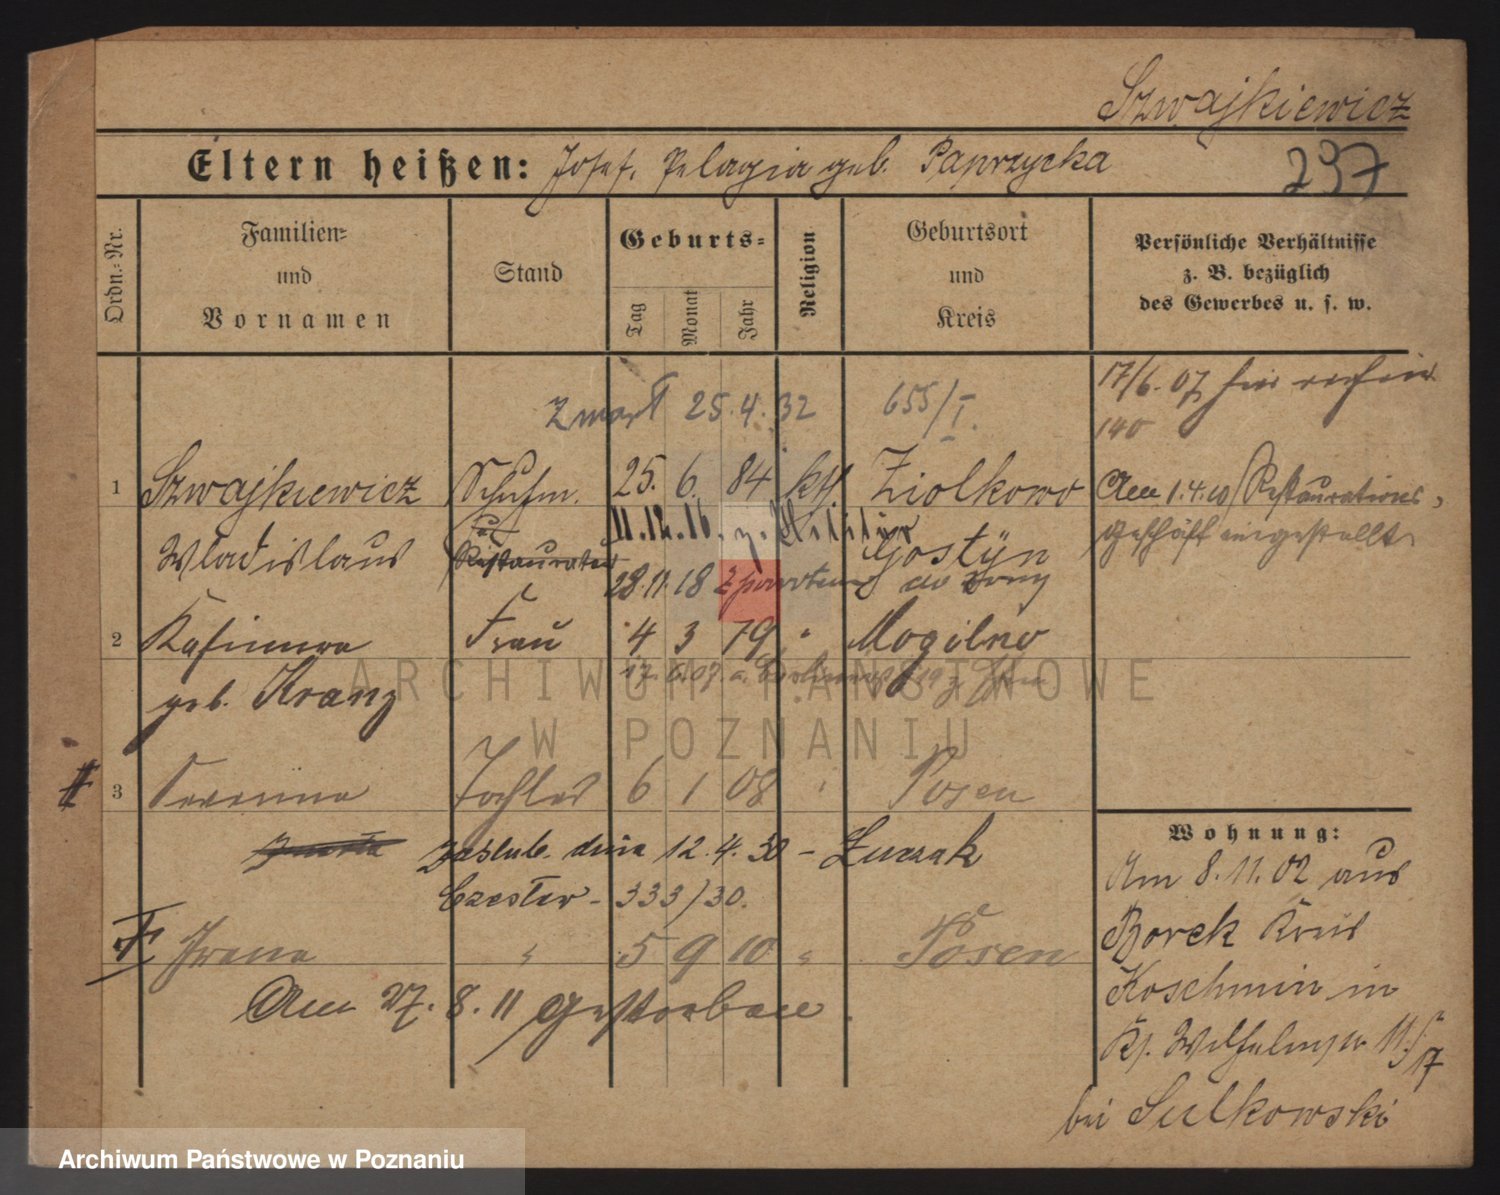 Szwajkiewicz
Eltern heißen: Josef, Pelagia geb. Paprzycka
237
Ordn.-Nr.
Familien- und Vornamen
Stand
Geburts-
Tag
Monat
Jahr
Religion
Geburtsort und Kreis
Persönliche Verhältnisse
z. B. bezüglich
des Gewerbes u. s. w.
17/6. 07
140
Zmarł 25.4.32 655/I.
1 Szwajkiewicz Schuhm. 25. 6. 84 kth. Ziolkowo
Am 1.4.10 Restaurations-
geschäft eingestellt
11.12.16. z. Militär
Wladislaus Restaurateur Gostÿn
28.11.18
2 Kasimira Frau 4 3 79 " Mogilno
17.6.07.
geb. Kranz
3 Severina Tochter 6 1 08 " Posen
Zaślub. dnia 12.4.30 - Żurzak
Czesław - 333/30.
Irena " 5 9 10 " Posen
Am 27. 8. 11 gestorben.
Wohnung:
Am 8.11.02 aus
Borek Kreis
Koschmin in
bei Sulkowski
ARCHIWUM PAŃSTWOWE
W POZNANIU
Archiwum Państwowe w Poznaniu